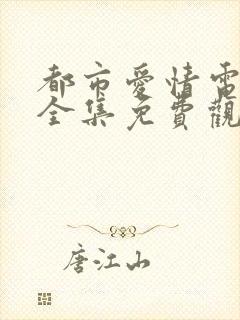 都市愛情電
全集免費觀
唐江山